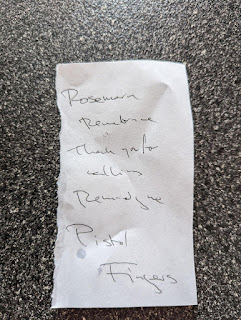 Rosemary
Thank you for
calling
Remind me
Pistol
Fingers